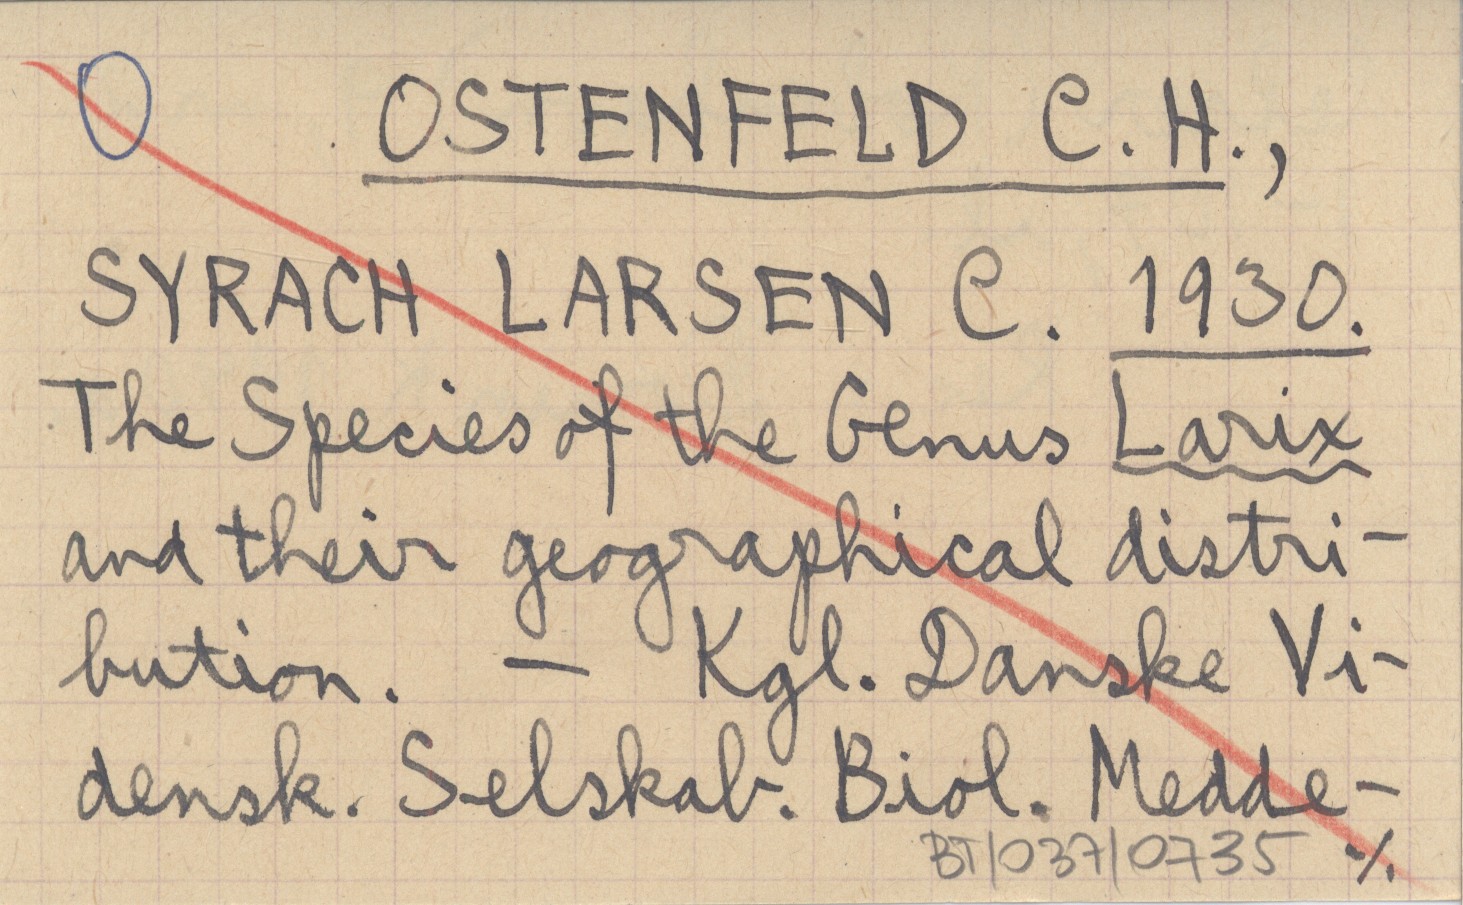 OSTENFELD C. H.,
SYRACH LARSEN C. 1930.
The Species of the Genus Larix
and their geographical distri-
bution. — Kgl. Danske Vi-
densk. Selskab. Biol. Medde-
BT/037/0735 ·/.